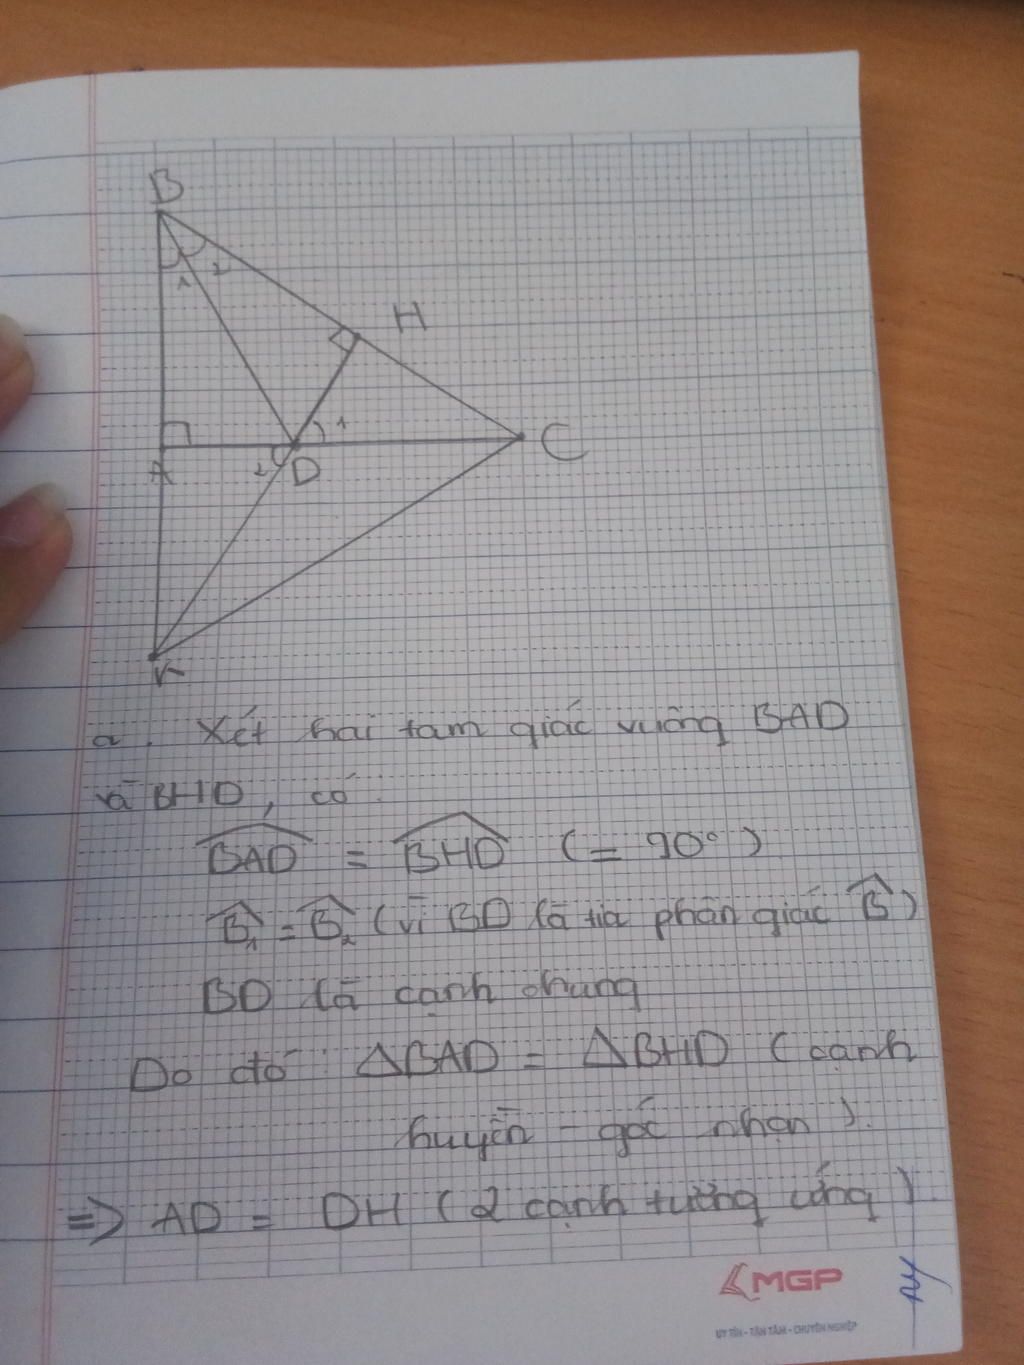 B
1 2
H
1
A
2
D
C
K
a. Xét hai tam giác vuông BAD
và BHD, có:
BAD = BHD (= 90°)
B₁ = B₂ (vì BD là tia phân giác B)
BD là cạnh chung
Do đó: ΔBAD = ΔBHD (cạnh
huyền - góc nhọn).
=> AD = DH (2 cạnh tương ứng).
MGP
UY TÍN - TẬN TÂM - CHUYÊN NGHIỆP